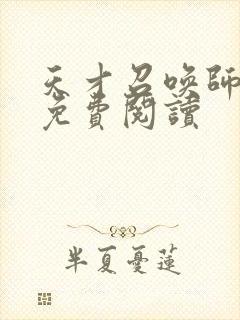 天才召喚師
免費閱讀
半夏憂蓮